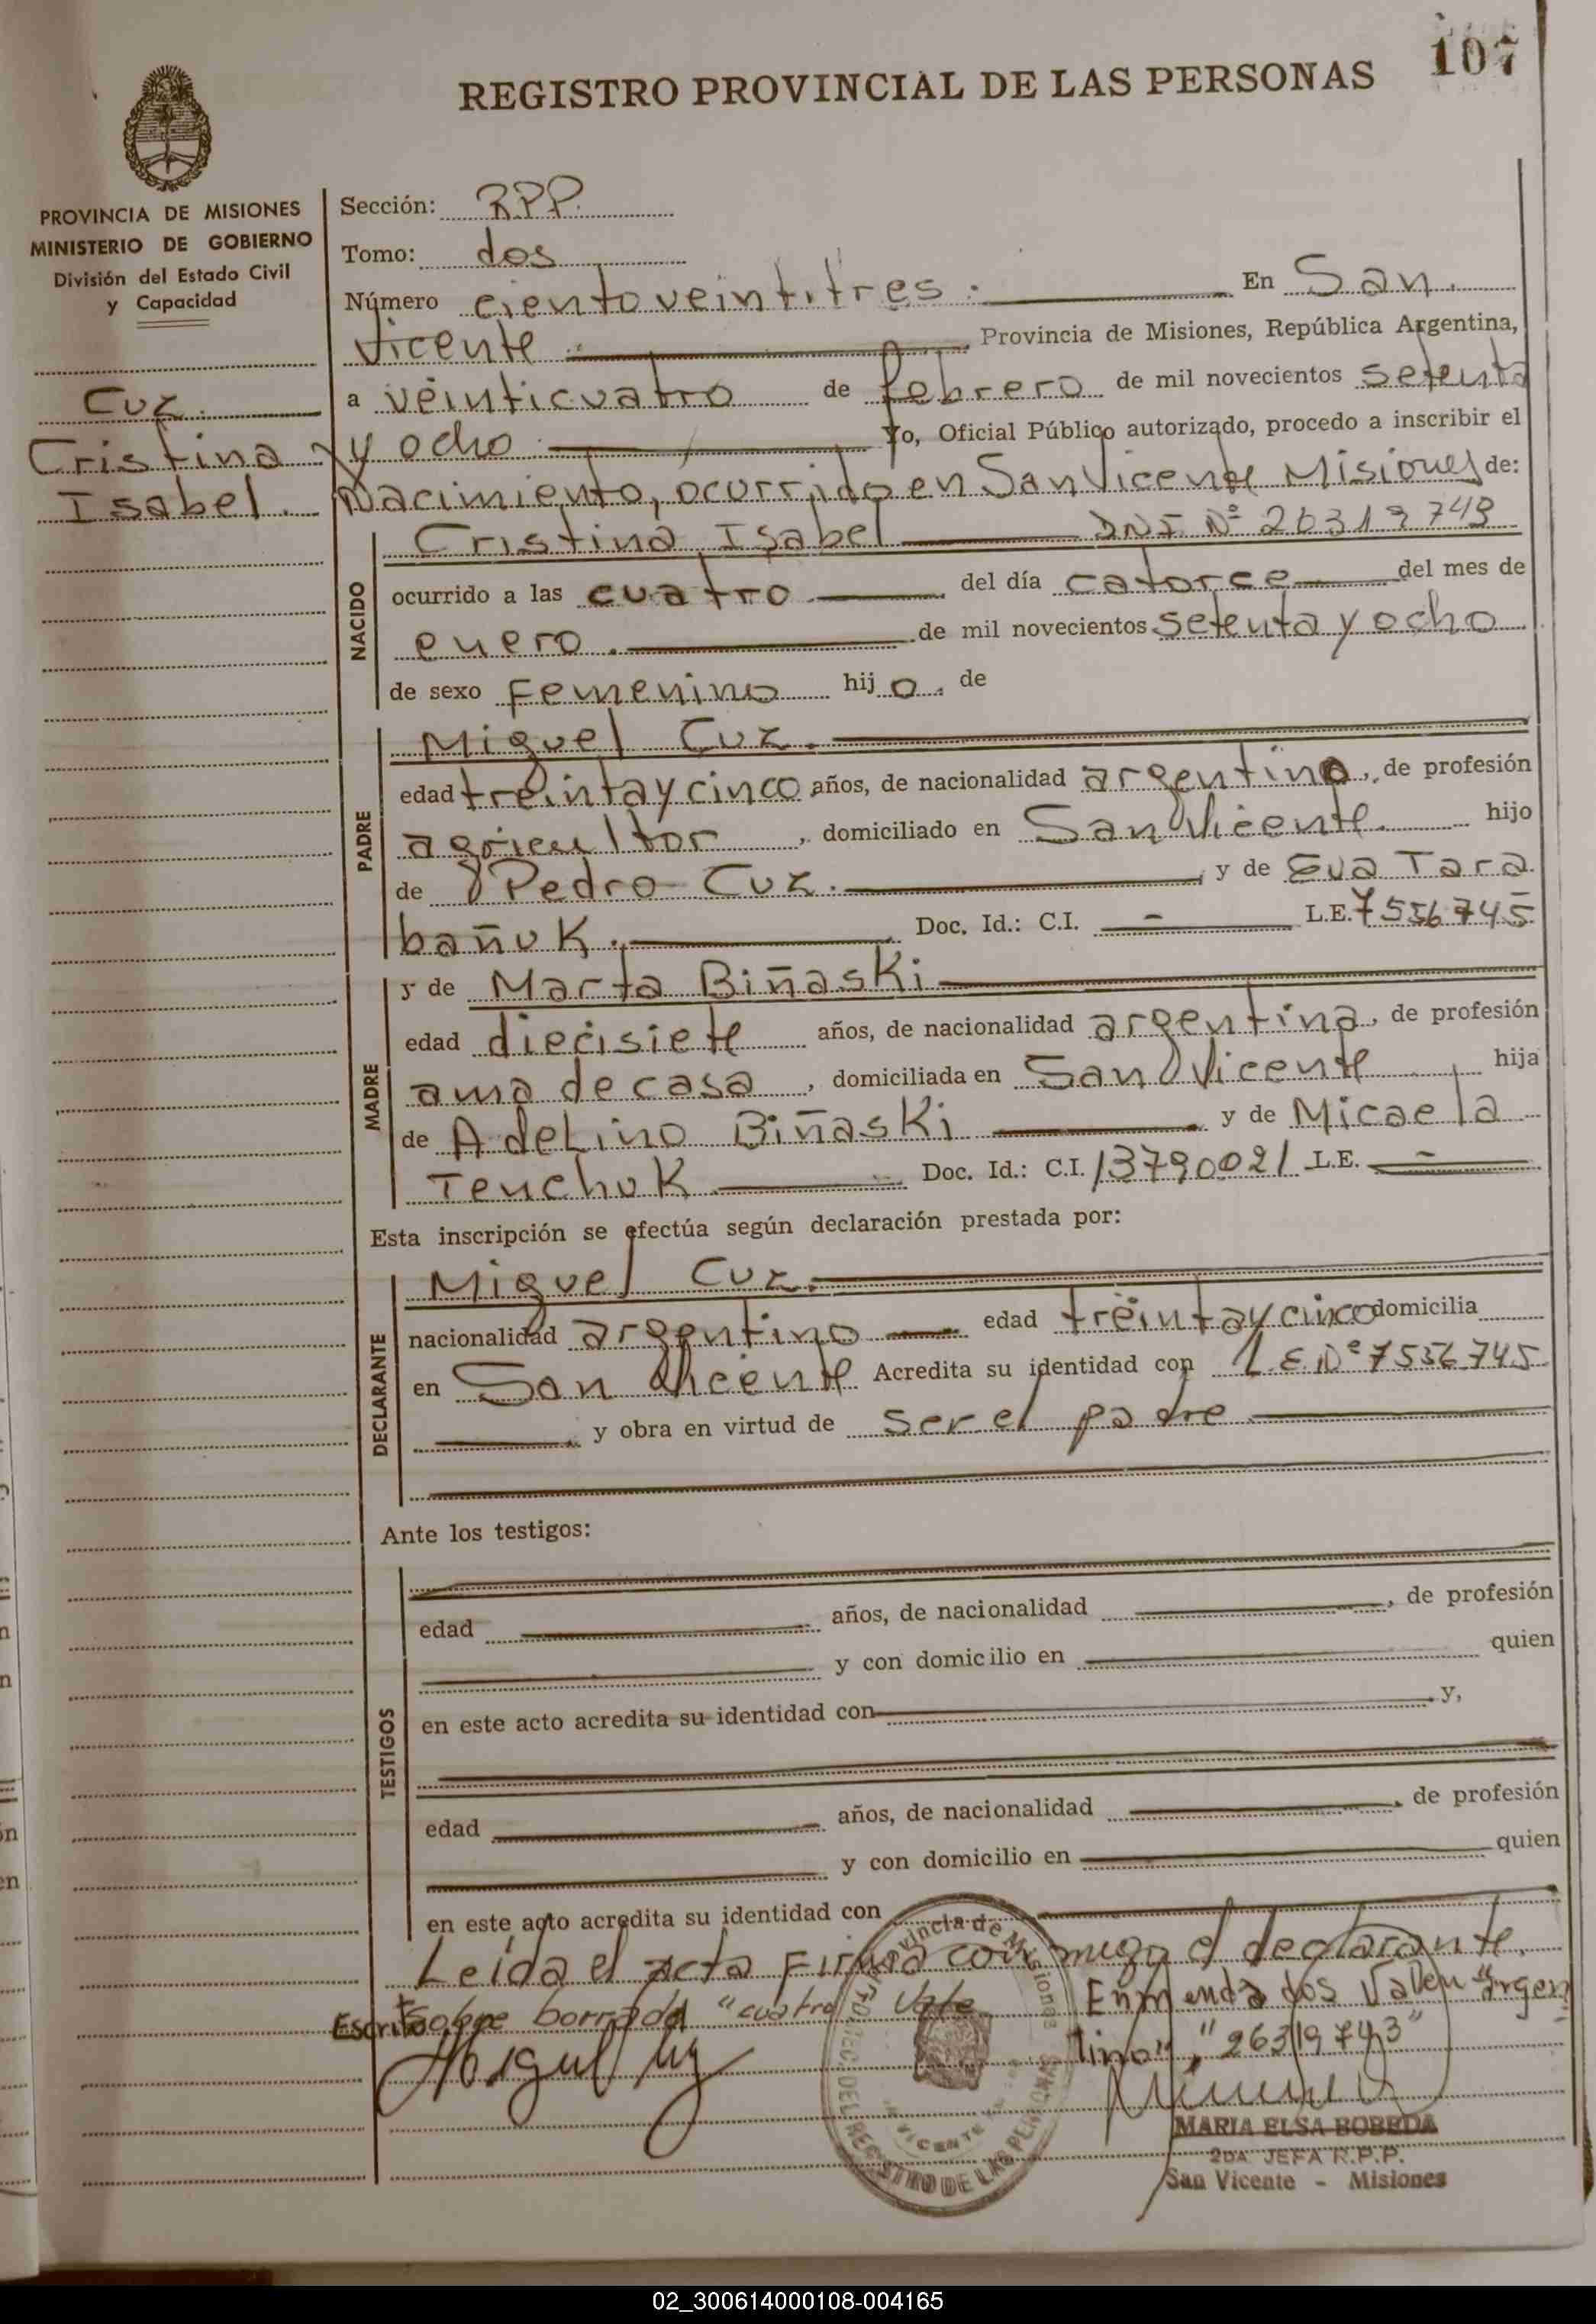 107
REGISTRO PROVINCIAL DE LAS PERSONAS
PROVINCIA DE MISIONES
MINISTERIO DE GOBIERNO
División del Estado Civil
y Capacidad
Cuz.
Cristina
Isabel.
Sección: R.P.P.
Tomo: dos
Número ciento veintitres. En San
Vicente. Provincia de Misiones, República Argentina,
a veinticuatro de febrero de mil novecientos setenta
y ocho Yo, Oficial Público autorizado, procedo a inscribir el
Nacimiento, ocurrido en San Vicente Misiones de:
NACIDO
Cristina Isabel DNI. Nº 26319743
ocurrido a las cuatro del día catorce del mes de
enero. de mil novecientos setenta y ocho
de sexo Femenino hij o. de
PADRE
Miguel Cuz.
edad treinta y cinco años, de nacionalidad argentino, de profesión
agricultor, domiciliado en San Vicente. hijo
de Pedro Cuz. y de Eva Tara
bañuk. Doc. Id.: C.I. - L.E. 7556745
MADRE
y de Marta Biñaski
edad diecisiete años, de nacionalidad argentina, de profesión
ama de casa, domiciliada en San Vicente, hija
de Adelino Biñaski y de Micaela
Tenchuk Doc. Id.: C.I. 13790021 L.E. -
Esta inscripción se efectúa según declaración prestada por:
DECLARANTE
Miguel Cuz.
nacionalidad argentino edad treinta y cinco domicilia
en San Vicente Acredita su identidad con L.E. Nº 7556745
y obra en virtud de ser el padre
Ante los testigos:
TESTIGOS
edad años, de nacionalidad , de profesión
y con domicilio en quien
en este acto acredita su identidad con y,
edad años, de nacionalidad , de profesión
y con domicilio en quien
en este acto acredita su identidad con
Leída el acta Firma conmigo el declarante.
Escrito sobre borrado "cuatro" Vale Enmendados Valen "argen
tino", "26319743"
Miguel Cuz
Provincia de Misiones
DEL REGISTRO DE LAS PERSONAS
VICENTE
MARIA ELSA BOBEDA
2DA JEFA R.P.P.
San Vicente - Misiones
02_300614000108-004165